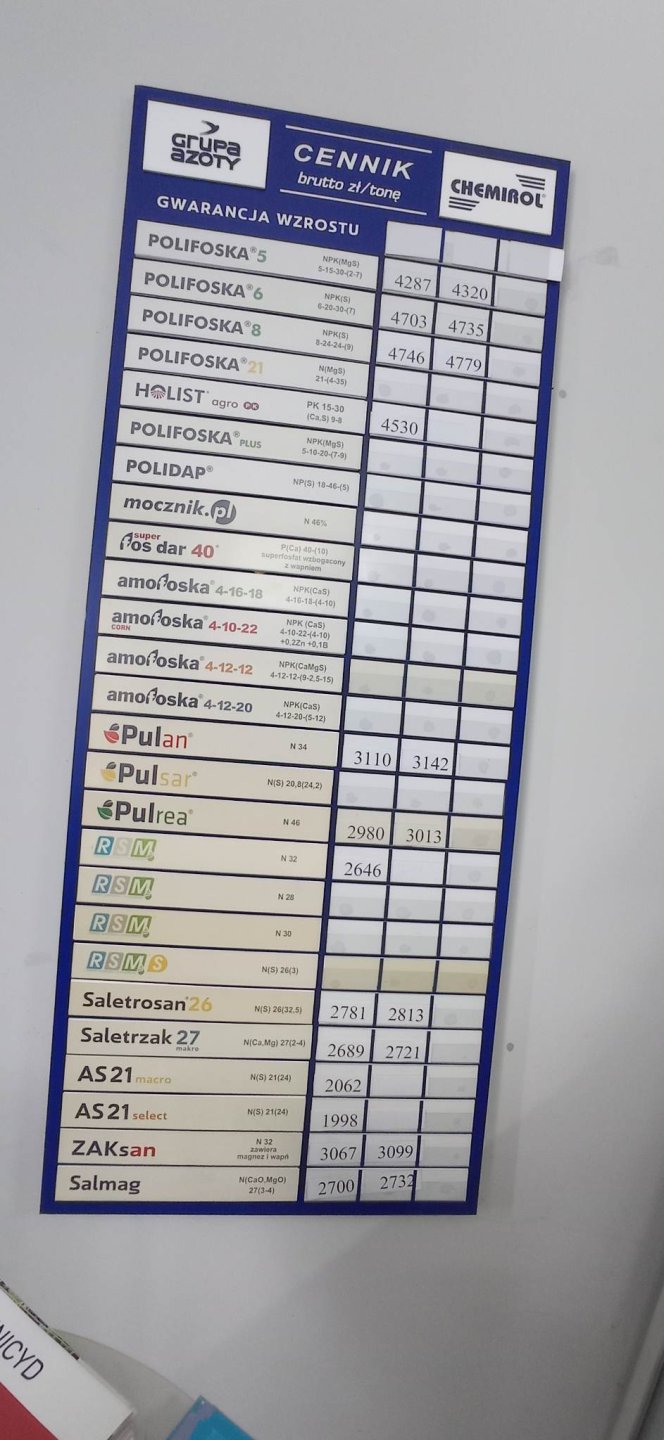 GRUPA AZOTY
CENNIK
brutto zł/tonę
CHEMIROL
GWARANCJA WZROSTU
POLIFOSKA®5 NPK(MgS) 5-15-30-(2-7) 4287 4320
POLIFOSKA®6 NPK(S) 6-20-30-(7) 4703 4735
POLIFOSKA®8 NPK(S) 8-24-24-(9) 4746 4779
POLIFOSKA®21 N(MgS) 21-(4-35)
HOLIST agro PK PK 15-30 (Ca,S) 9-8 4530
POLIFOSKA®PLUS NPK(MgS) 5-10-20-(7-9)
POLIDAP® NP(S) 18-46-(5)
mocznik.pl N 46%
super fos dar 40® P(Ca) 40-(10) superfosfat wzbogacony z wapniem
amofoska®4-16-18 NPK(CaS) 4-16-18-(4-10)
amofoska®4-10-22 CORN NPK (CaS) 4-10-22-(4-10) +0,2Zn +0,1B
amofoska®4-12-12 NPK(CaMgS) 4-12-12-(9-2,5-15)
amofoska®4-12-20 NPK(CaS) 4-12-20-(5-12)
Pulan® N 34 3110 3142
Pulsar® N(S) 20,8(24,2)
Pulrea® N 46 2980 3013
RSM® N 32 2646
RSM® N 28
RSM® N 30
RSMS N(S) 26(3)
Saletrosan®26 N(S) 26(32,5) 2781 2813
Saletrzak 27 makro N(Ca,Mg) 27(2-4) 2689 2721
AS 21 macro N(S) 21(24) 2062
AS 21 select N(S) 21(24) 1998
ZAKsan N 32 zawiera magnez i wapń 3067 3099
Salmag N(CaO,MgO) 27(3-4) 2700 2732
NICYD